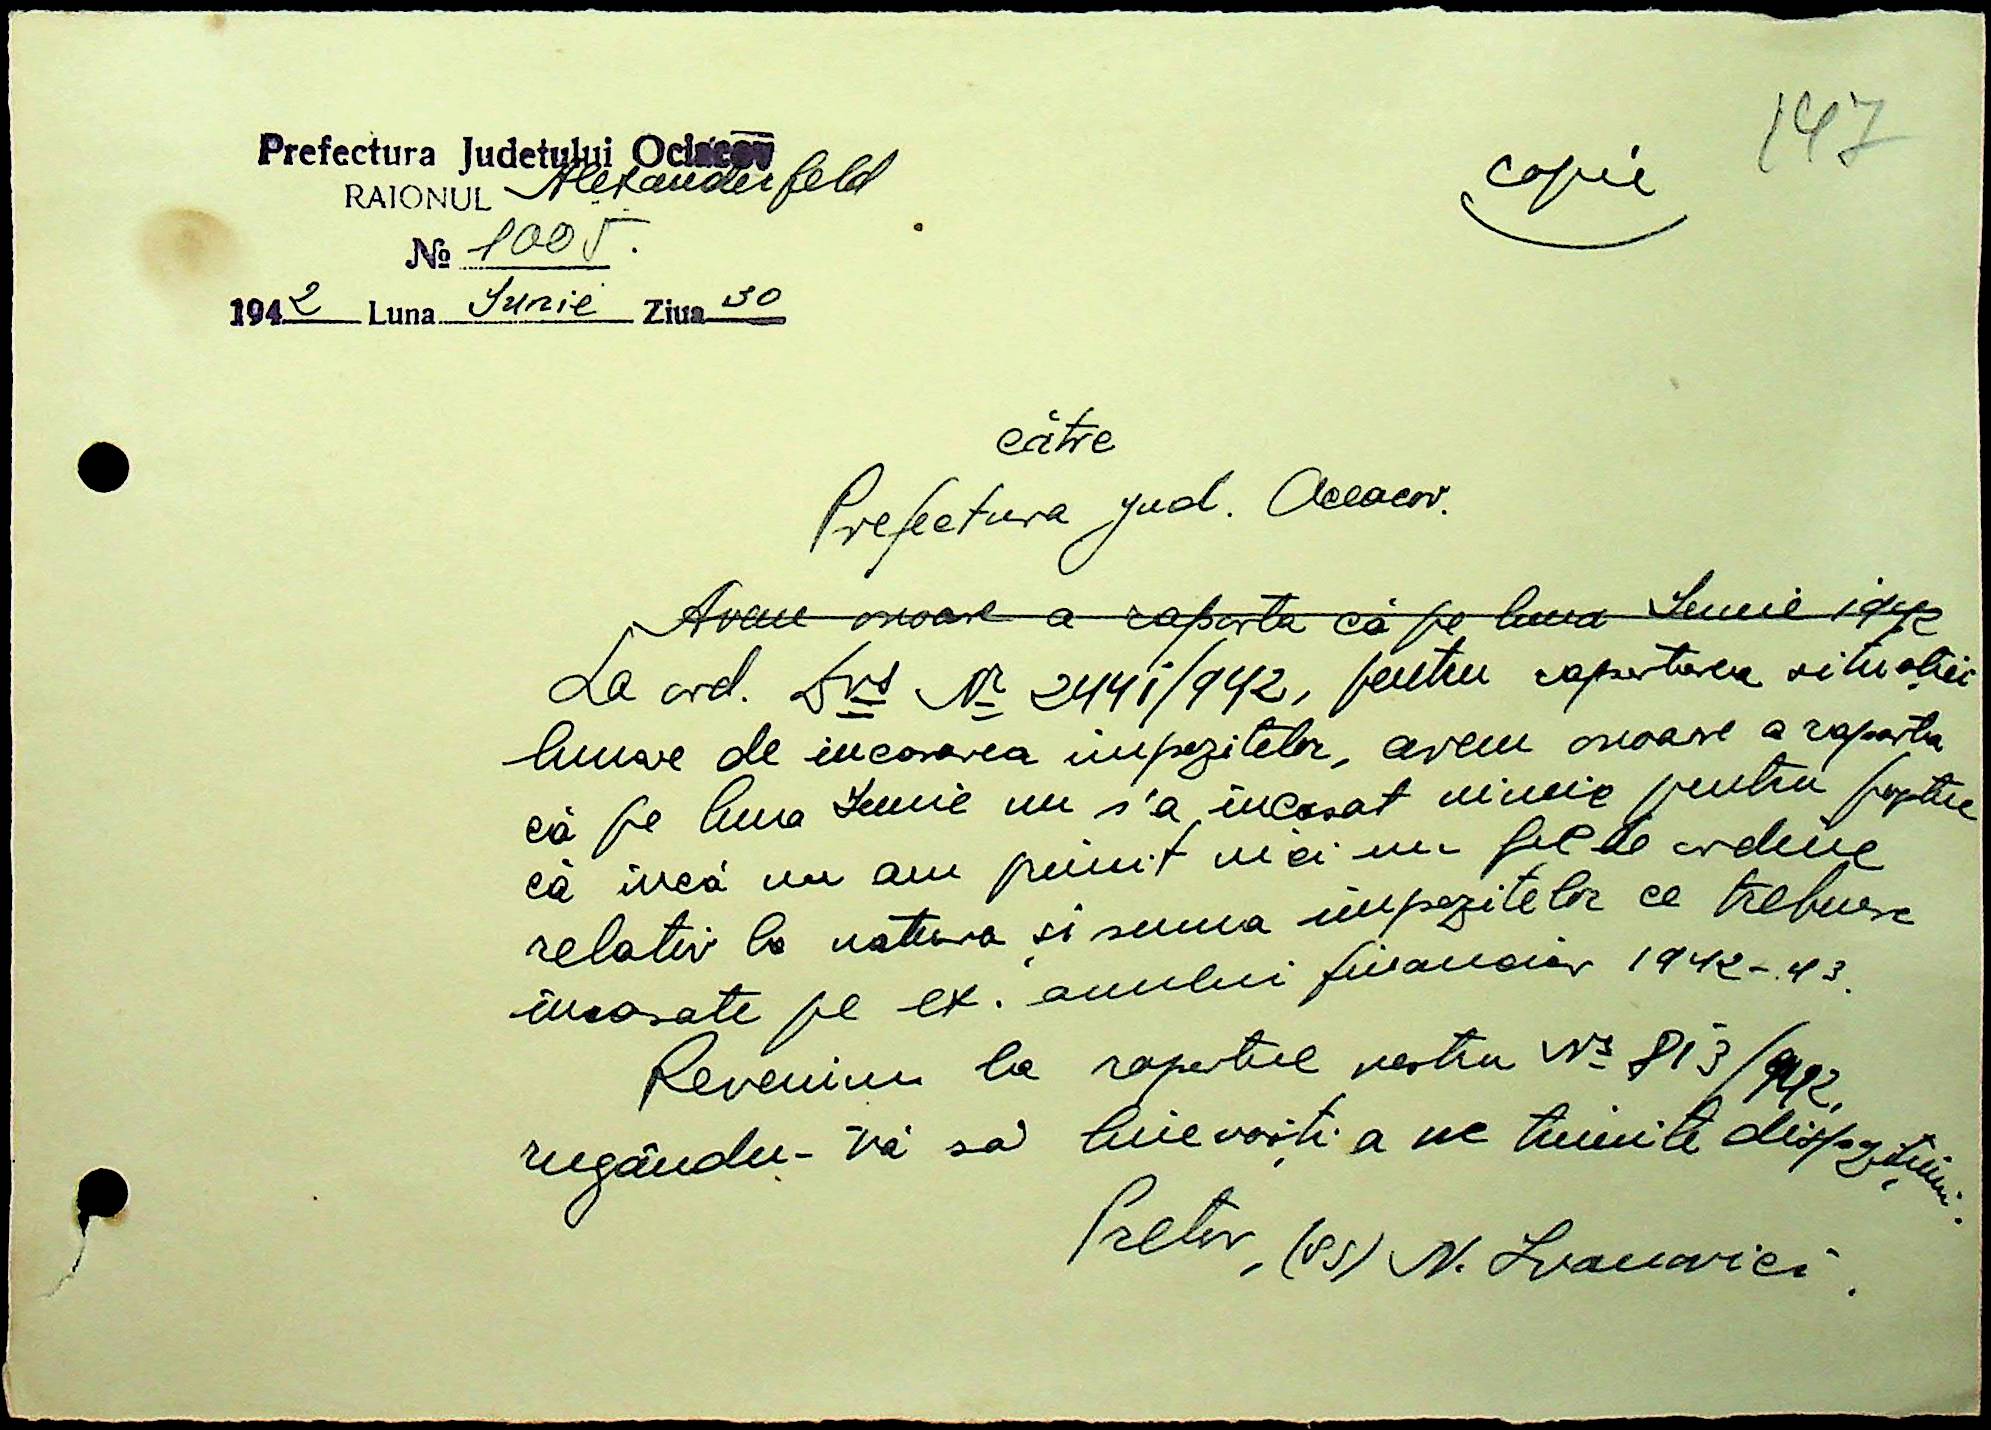 147
copie
Prefectura Judetului Ociacov
RAIONUL Alexanderfeld
№ 1005.
1942 Luna Iunie Ziua 30
către
Prefectura jud. Oceacov.
Avem onoare a raporta că pe luna Iunie 1942
La ord. Dvs Nr 2441/942, pentru raportarea situației
lunare de incasarea impozitelor, avem onoare a raporta
că pe luna Iunie nu s'a incasat nimic pentru faptul
că incă nu am primit nici un fel de ordine
relativ la natura și suma impozitelor ce trebuesc
incasate pe ex. anului financiar 1942-43.
Revenim la raportul nostru Nr 813/942,
rugându-vă să binevoiți a ne trimite dispozițiuni.
Pretor, (ss) N. Ivanovici.